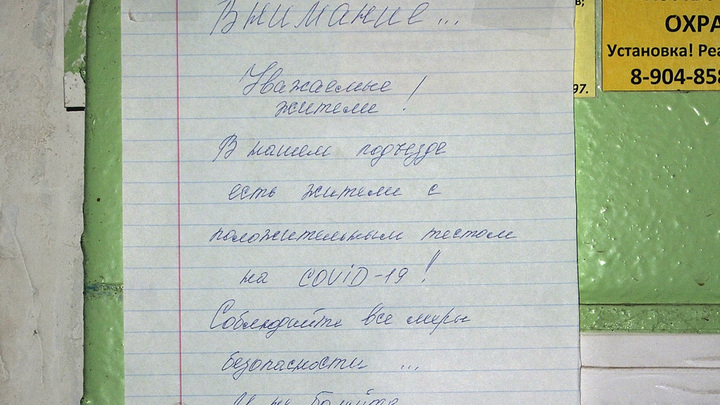 Внимание...
Уважаемые
жители!
В нашем подъезде
есть жители с
положительным тестом
на COVID-19!
Соблюдайте все меры
безопасности ...
И не болейте
ОХРА
Установка! Реа
8-904-858
97.